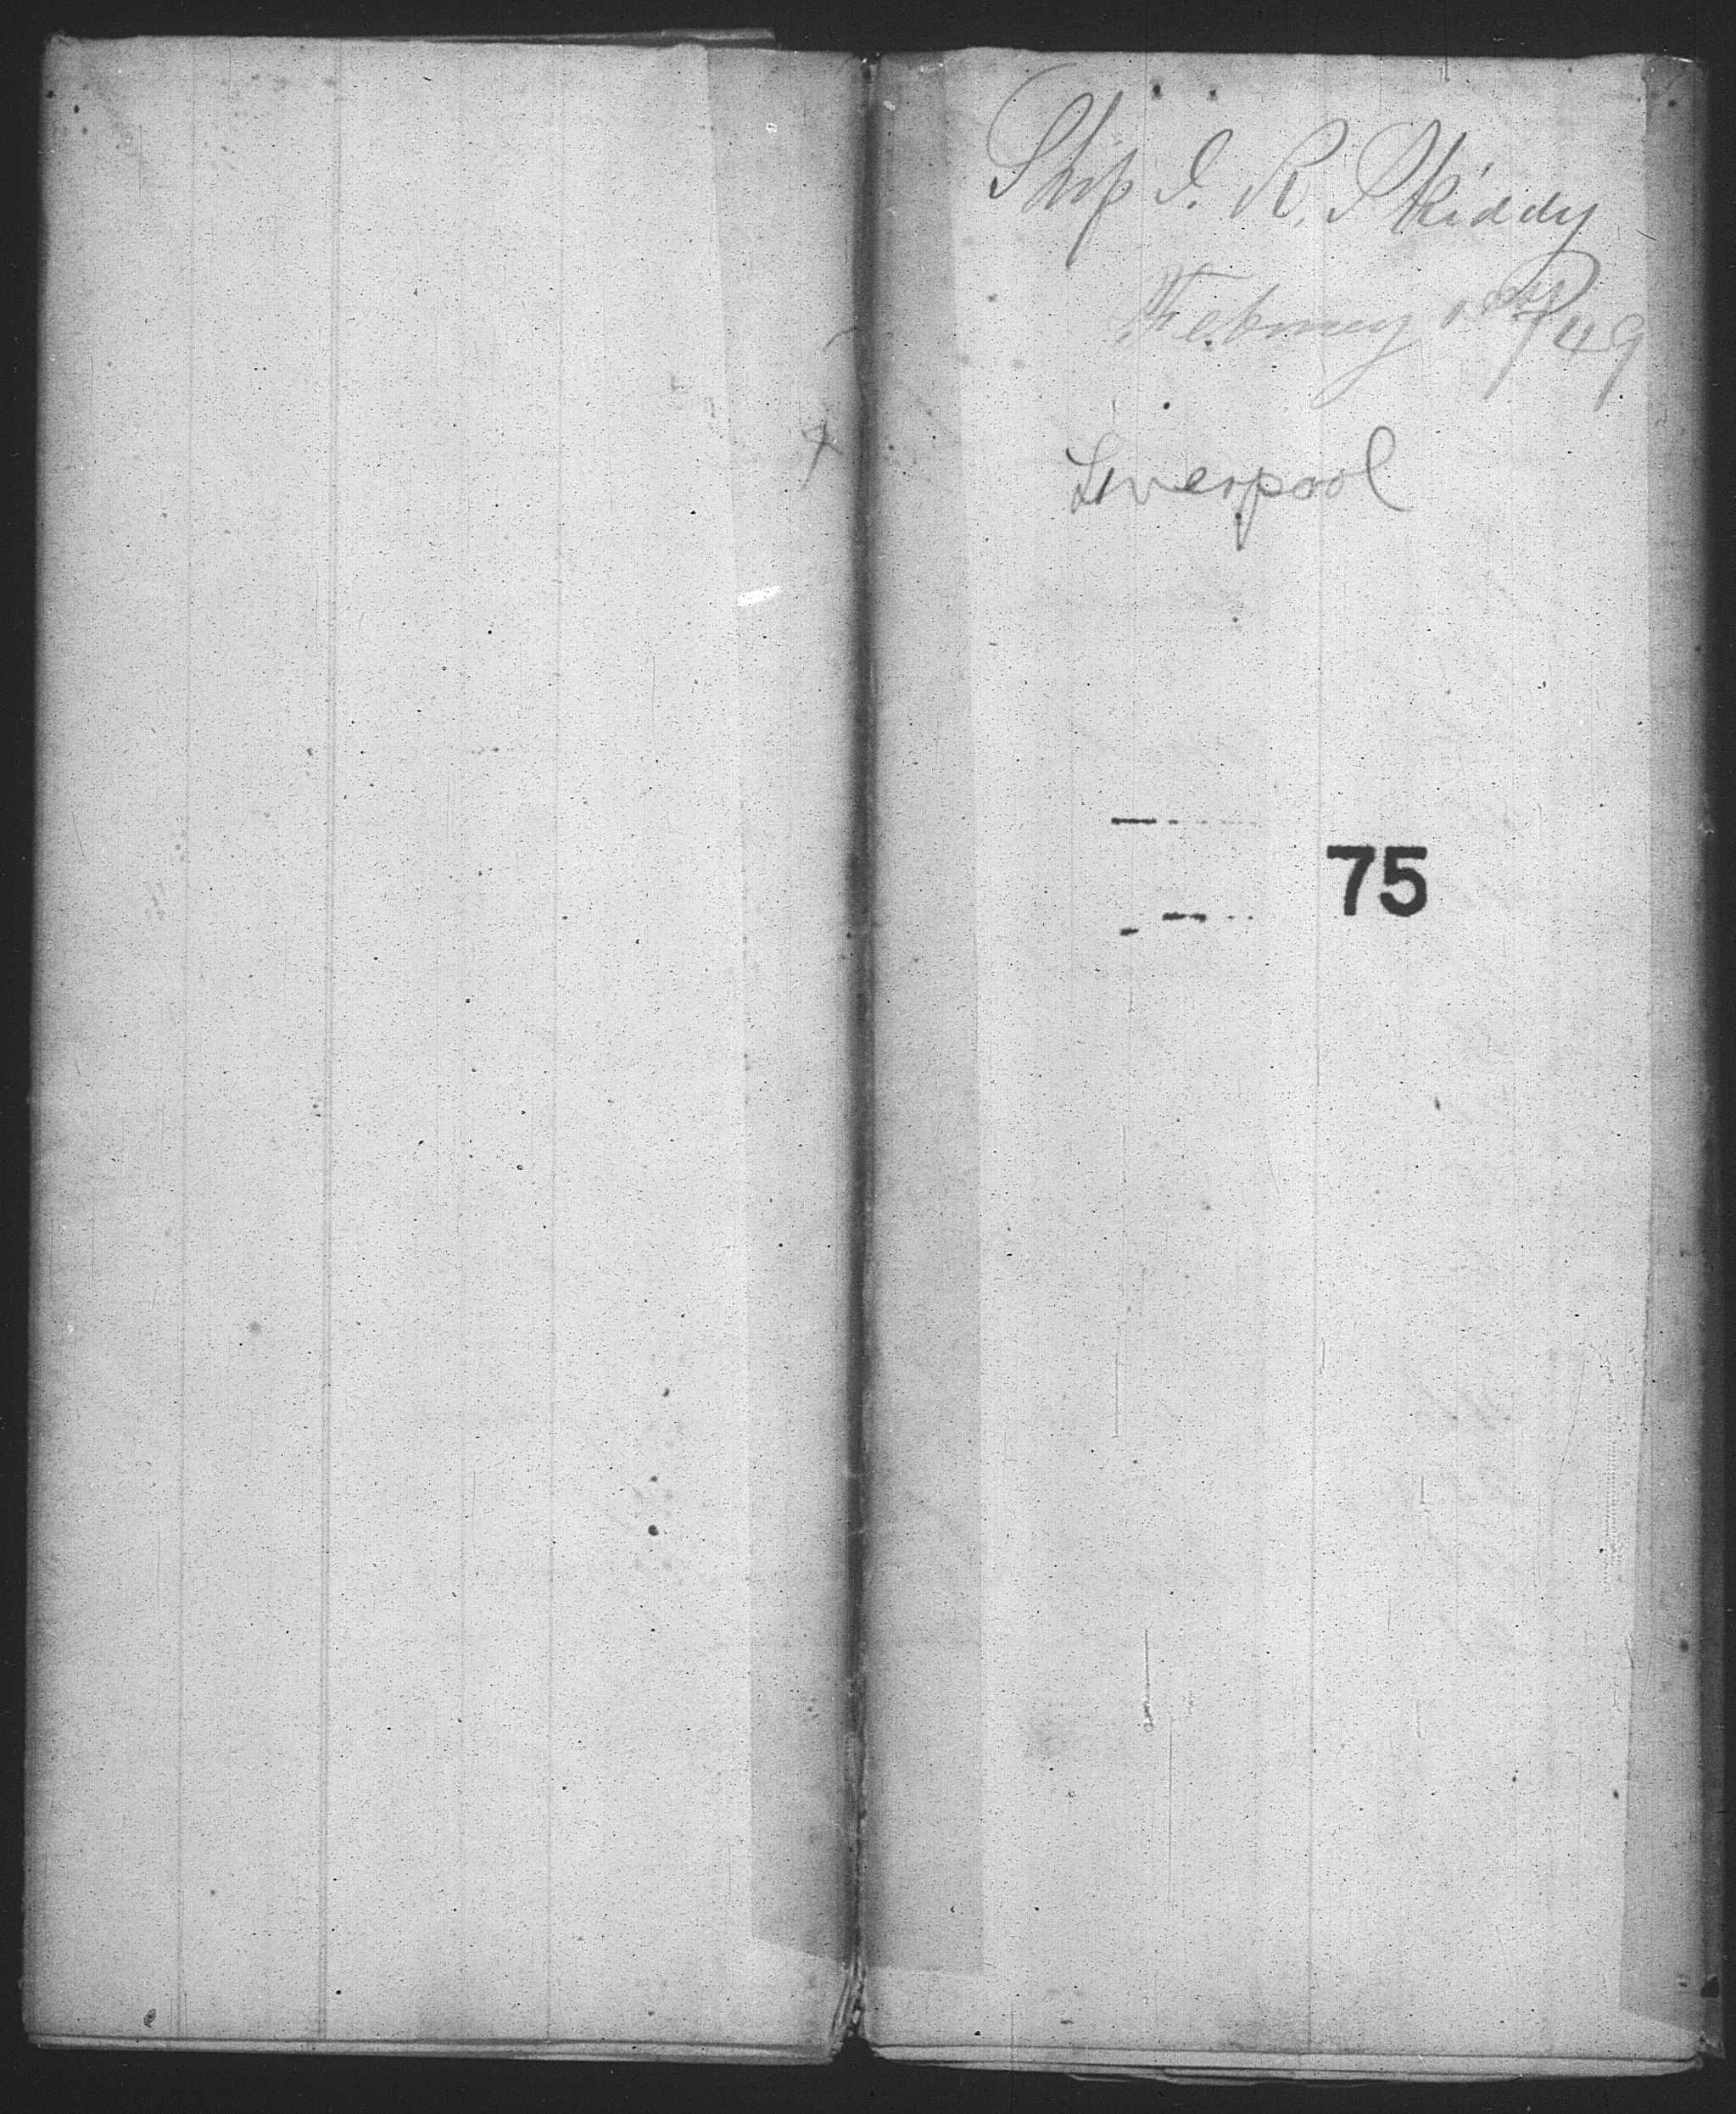 Ship I. R. Skiddy
Februay 1st /49
Liverpool
75